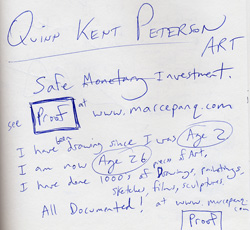 Quinn Kent Peterson
ART
Safe Monetary Investment.
see Proof at www.marcepanq.com
I have been drawing since I was Age 2
I am now Age 26
I have done 1000s of pieces of Art,
Drawings, paintings,
sketches, films, sculptures.
All Documented! at www.marcepanq.com
Proof